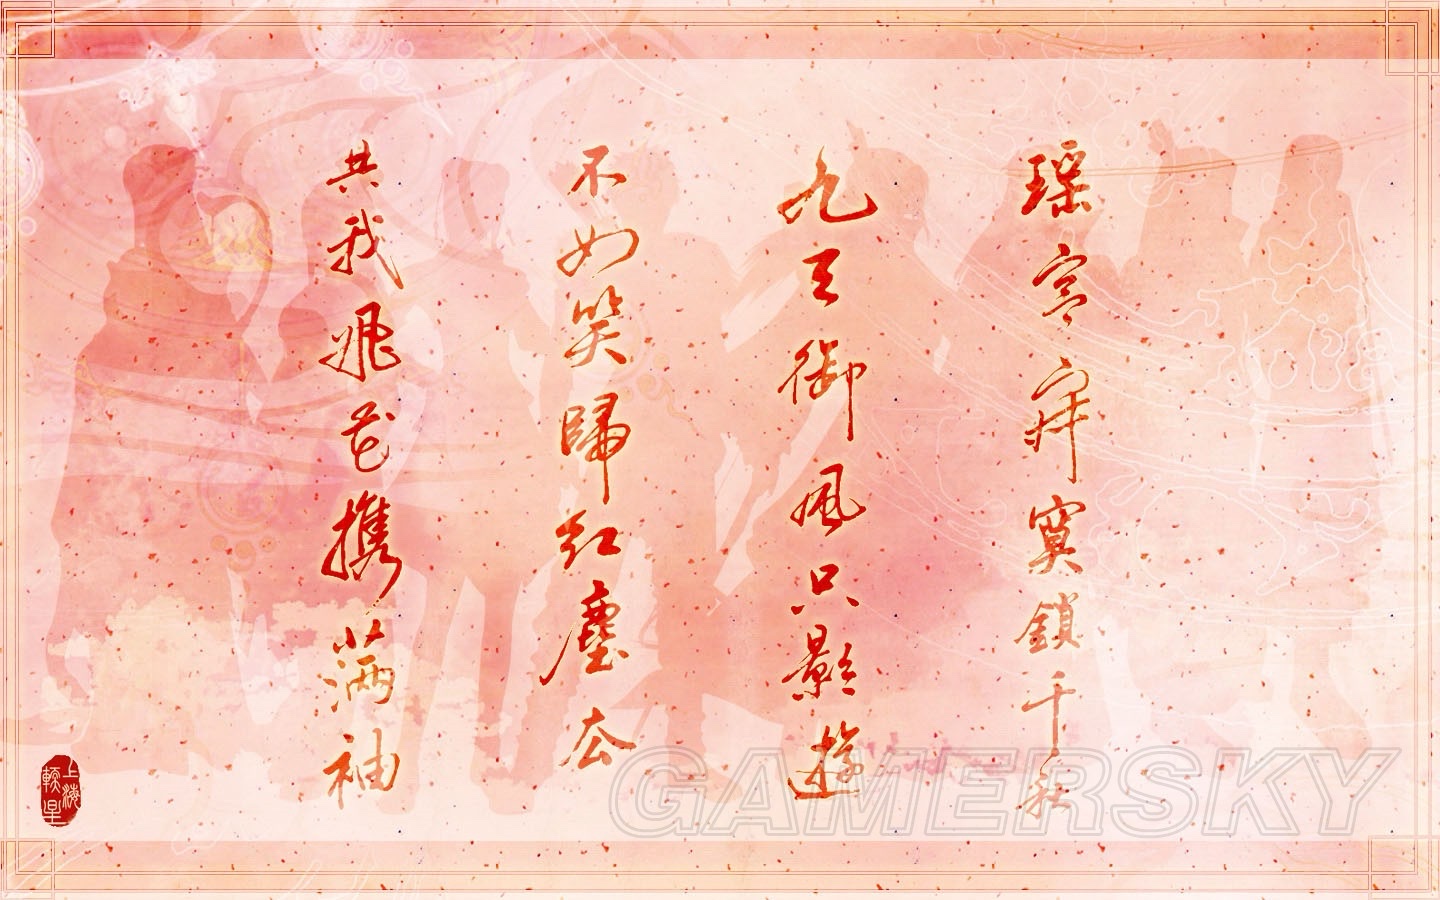 瑶宫寂寞鎖千秋
九天御風只影遊
不如笑歸紅塵去
共我飛花攜滿袖
上海
軟星
GAMERSKY